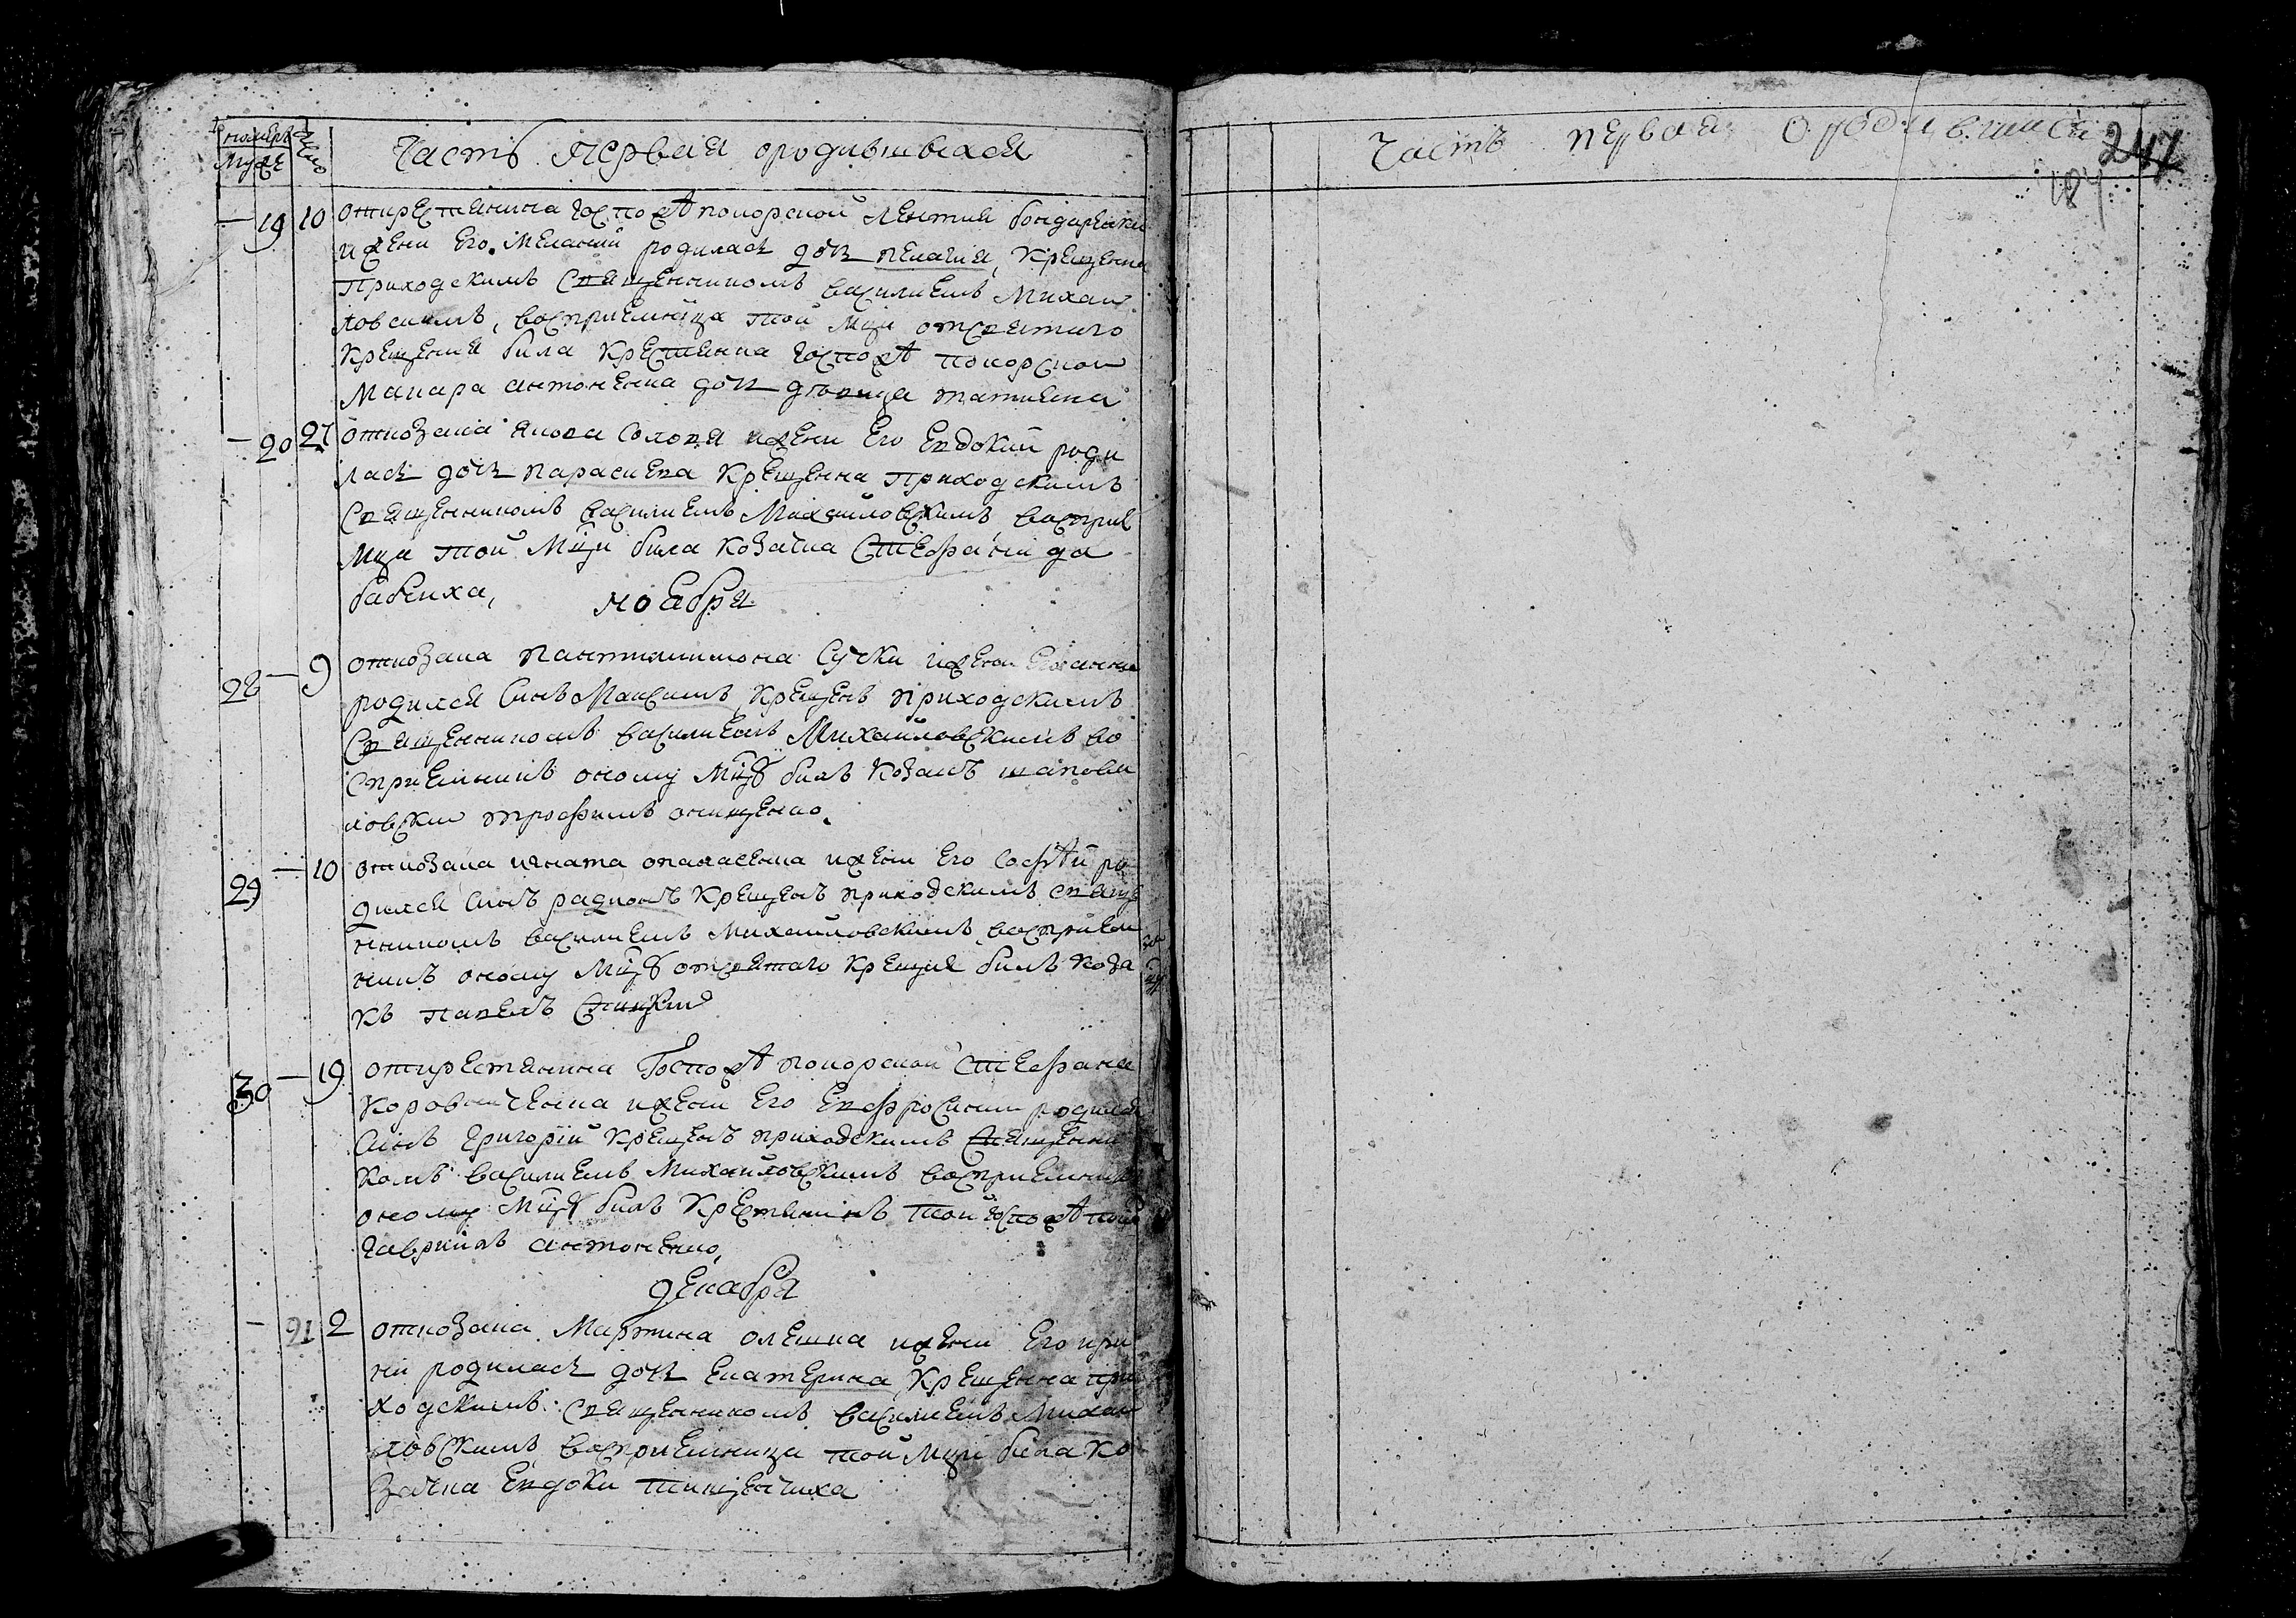 номеръ число
Му же
Часть первая ородившихся
— 19 10 открестянина госпожѣ покорской леонтия бондаренка
ижени его Мелании родилась дочь пелагия, крещенна
Приходскимъ Священникомъ василиемъ Михай
ловскимъ, восприемница той Мцы отсвятаго
крещения била крестянка госпожѣ покорской
Макара антоненка дочь дѣвица татияна
— 20 27 откозака якова соловя ижени его Евдокий роди
лась дочь параскева крещенна Приходскимъ
Священникомъ василиемъ Михайловскимъ восприе
мца той Мцы била козачка Стефанида
бабенха,
ноября
28 — 9 откозака пантилимона Сучки ижени его анни
родился Синъ Максимъ, крещенъ приходскимъ
Священникомъ василиемъ Михайловскимъ во
сприемникъ оному Мцу билъ козакъ шапова
ловский трофимъ онищенко
29 — 10 откозака игната опанасенка ижени его Софѣи ро
дился Синъ радионъ крещенъ приходскимъ Свяще
нникомъ василиемъ Михайловскимъ восприем
никъ оному Мцу отсвятаго крещия билъ коза
къ павелъ
30 — 19 открестянина Госпожѣ покорской Стефана
коровниченка ижени его Евфросинии родился
Синъ григорий крещенъ приходскимъ Священни
комъ василиемъ Михайловскимъ восприемникъ
оному Мцу билъ крестянинъ той госпожѣ пок
гавриилъ антоненко,
декабря
— 21 2 откозака Мартина олешка ижени его ири
ни родилась дочь екатерина крещенна при
ходскимъ Священникомъ василиемъ Михай
ловскимъ восприемница той Мцы била ко
зачка Евдокия тищенчиха
Часть первая ородившихся
247
184